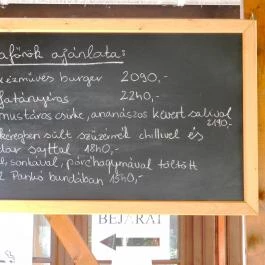 afőnök ajánlata:
kézműves burger 2090,-
fatányéros 2240,-
mustáros csirke, ananászos kevert salival
2190,-
kéregben sült szűzérmék chillivel és
dar sajttal 1840,-
sonkával, póréhagymával töltött
Pankó bundában 1540,-
BEJÁRAT